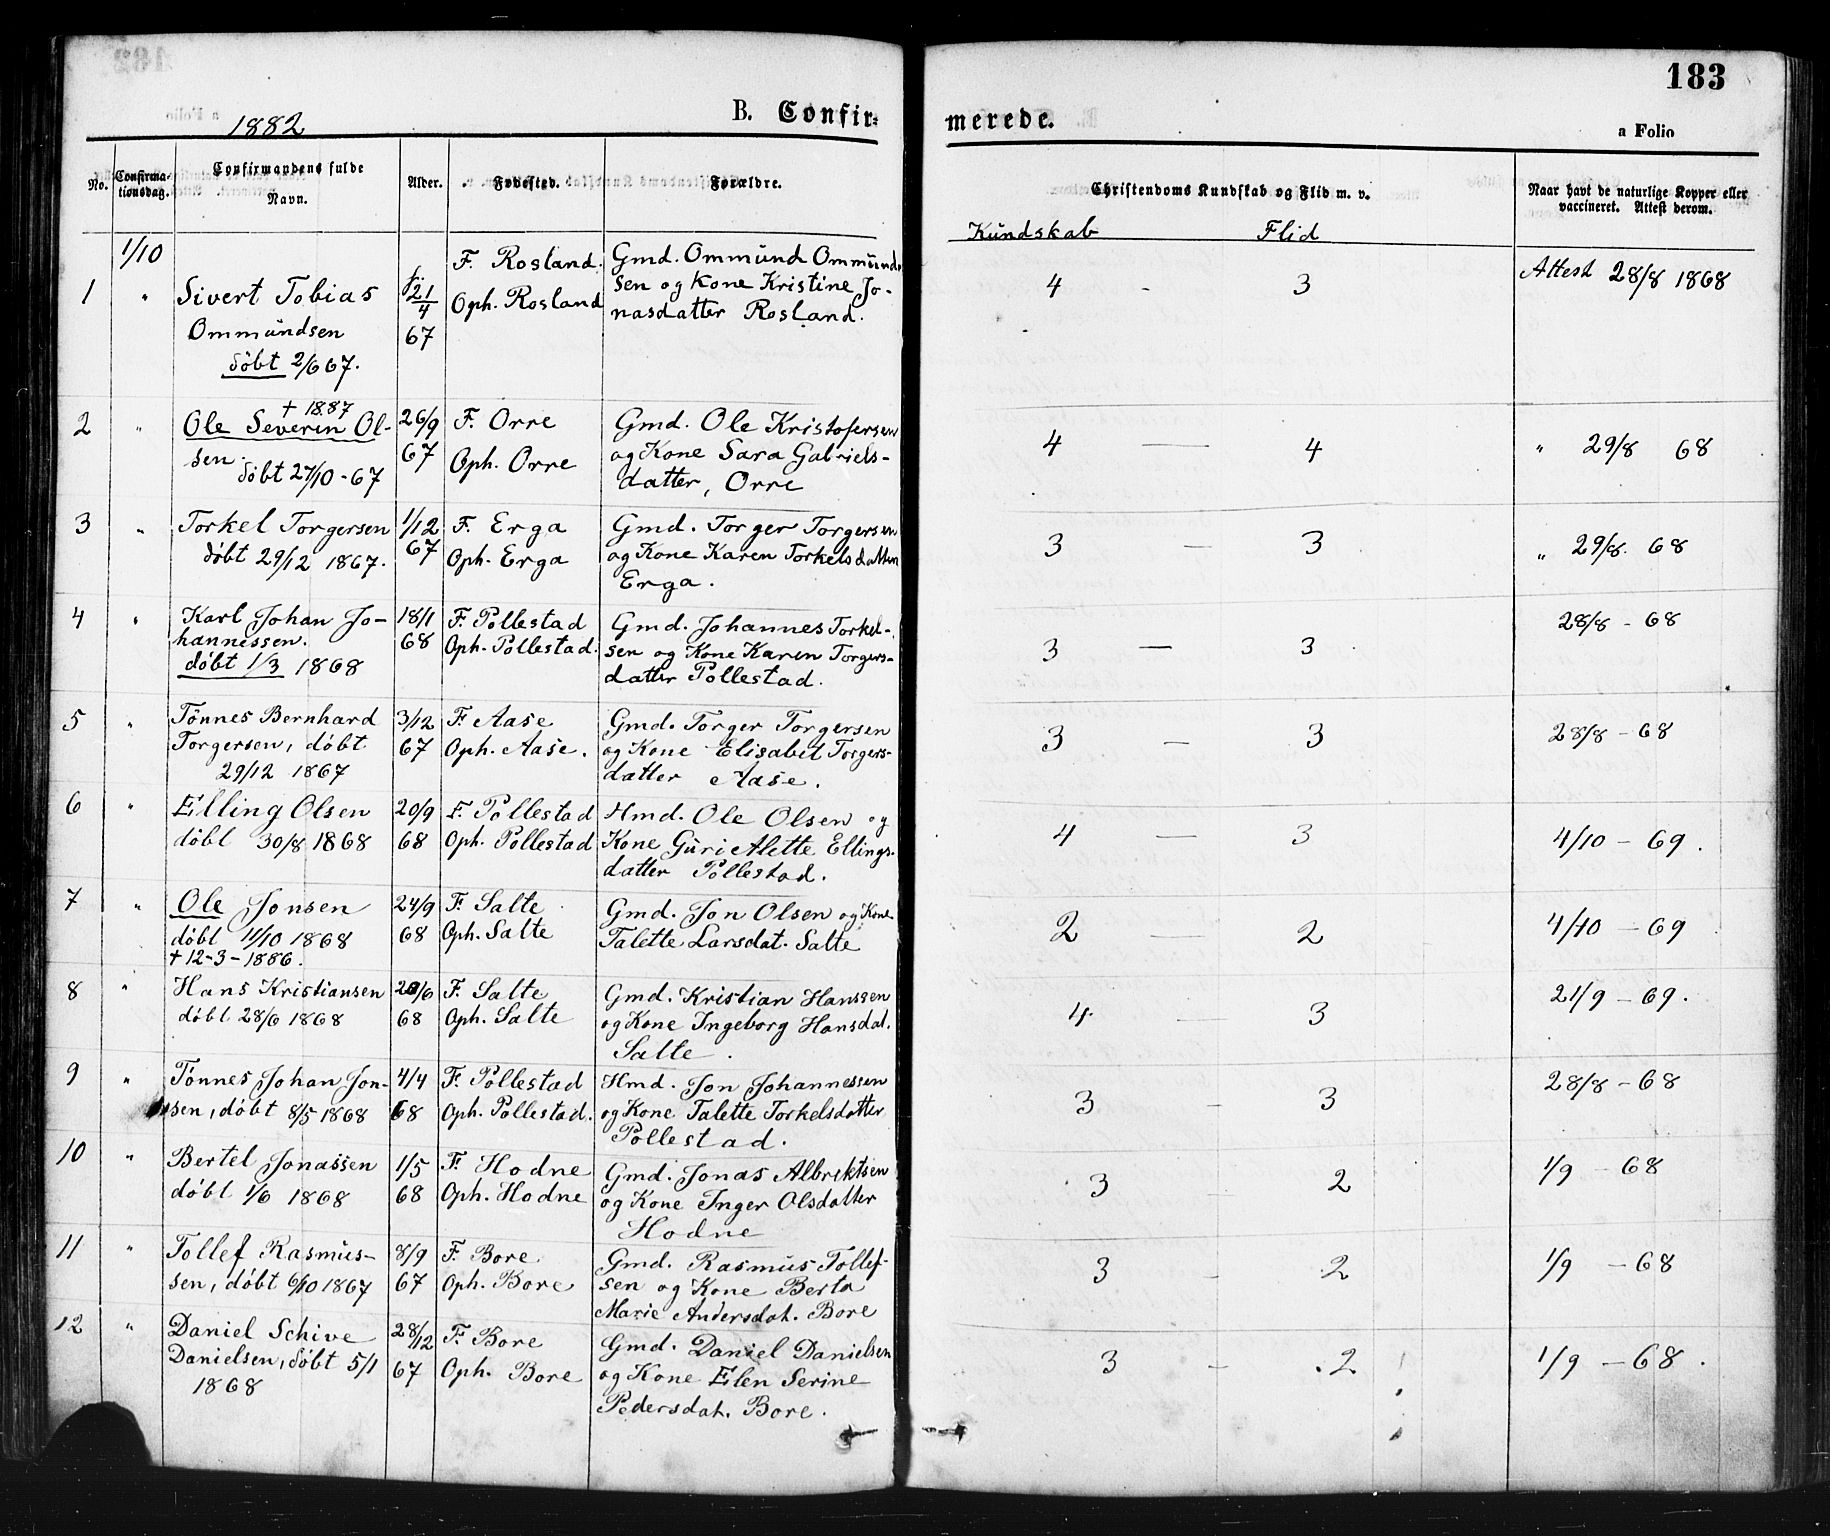 183
1882
B. Confir-
merede.
a Folio
No.
Confirma-
tionsdag.
Confirmandens fulde
Navn.
Alder.
Fødested.
Forældre.
Christendoms Kundskab og Flid m. v.
Naar havt de naturlige Kopper eller
vaccineret. Attest derom.
Kundskab Flid
1/10
1 " Sivert Tobias
Ommundsen
døbt 2/6 67.
f. 21/4
67
F. Rosland.
Oph. Rosland
Gmd. Ommund Ommund-
sen og Kone Kristine Jo-
nasdatter Rosland.
4 - 3
Attest 28/8 1868
2 " † 1887
Ole Severin Ol-
sen.
døbt 27/10 - 67
26/9
67
F. Orre
Oph. Orre
Gmd. Ole Kristofersen
og Kone Sara Gabriels-
datter, Orre
4 — 4
" 29/8 68
3 " Torkel Torgersen
døbt 29/12 1867.
1/12
67
F. Erga
Oph. Erga
Gmd. Torger Torgersen
og Kone Karen Torkelsdatter
Erga.
3 — 3
" 29/8. 68
4 " Karl Johan Jo-
hannessen.
døbt 1/3 1868
18/1
68
F. Pollestad
Oph. Pollestad.
Gmd. Johannes Torkel-
sen og Kone Karen Torgers-
datter Pollestad.
3 — 3
28/8 - 68
5 " Tönnes Bernhard
Torgersen, døbt
29/12 1867
3/12
67
F. Aase
Oph. Aase.
Gmd. Torger Torgersen
og Kone Elisabet Torgers-
datter Aase.
3 — 3
28/8 - 68
6 " Elling Olsen
døbt 30/8 1868
20/9
68
F. Pollestad
Oph. Pollestad
Hmd. Ole Olsen og
Kone Guri Alette Ellings-
datter Pollestad.
4 — 3
4/10 - 69.
7 " Ole Jonsen
døbt 11/10 1868
† 12-3-1886.
24/9
68
F. Salte
Oph. Salte
Gmd. Jon Olsen og Kone
Talette Larsdat. Salte
2 — 2
4/10 - 69
8 " Hans Kristiansen
døbt 28/6 1868
/6
68
F. Salte
Oph. Salte
Gmd. Kristian Hanssen
og Kone Ingeborg Hansdat.
Salte.
4 — 3
21/9 - 69.
9 " Tönnes Johan Jon-
sen, døbt 8/5 1868
4/4
68
F. Pollestad
Oph. Pollestad.
Hmd. Jon Johannessen
og Kone Talette Torkelsdatter
Pollestad.
3 - 3
28/8 - 68
10 " Bertel Jonassen
døbt 1/6 1868
1/5
68
F. Hodne
Oph. Hodne
Gmd. Jonas Albrektsen
og Kone Inger Olsdatter
Hodne
3 - 2
1/9 - 68
11 " Tollef Rasmus-
sen, døbt 6/10 1867
8/9
67
F. Bore
Oph. Bore
Gmd. Rasmus Tollef-
sen og Kone Berta
Marie Andersdat. Bore
3 - 2
1/9 - 68
12 " Daniel Schive
Danielsen, døbt 5/1
1868
28/12
67
F. Bore
Oph. Bore
Gmd. Daniel Danielsen
og Kone Elen Serine
Pedersdat. Bore.
3 - 2
1/9 - 68.